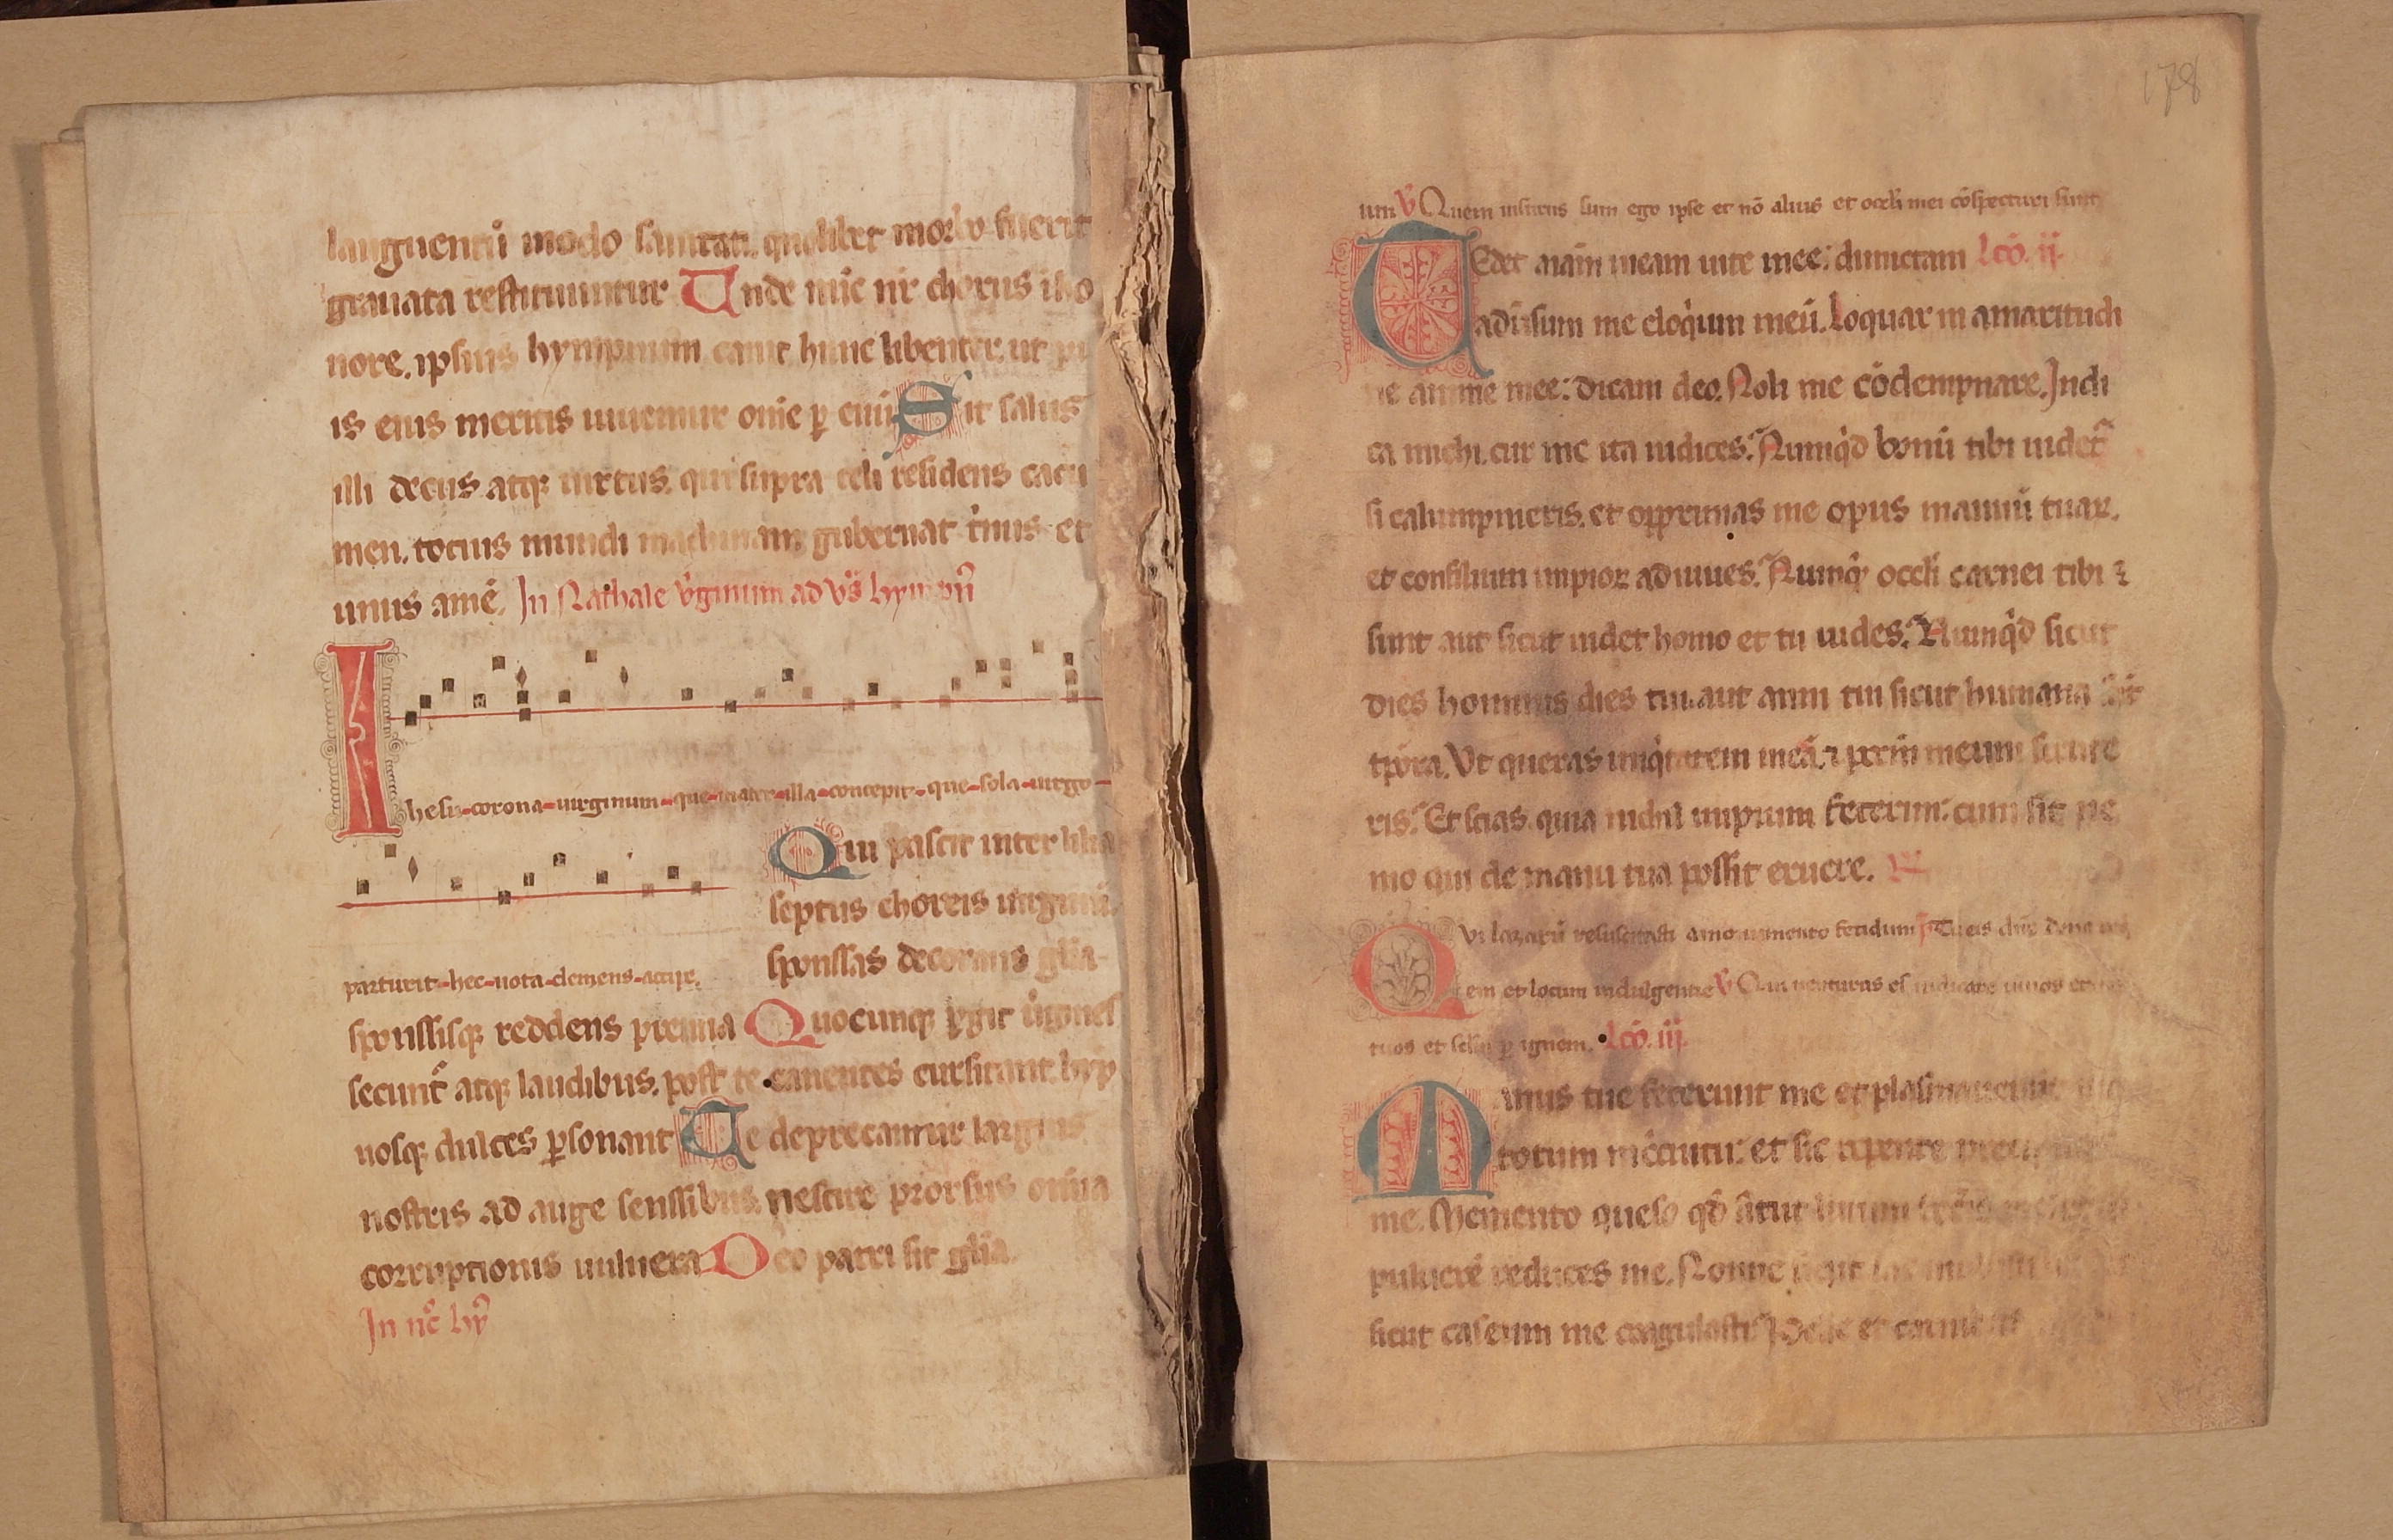 languentū modo sanitati. quolibet morbo fuerit
grauata restituuntur Unde nūc nr̄ chorus in ho
nore. ipsius hympnum canit hunc libenter. ut pi
is eius meritis iuuemur om̄e p̄ euū Sit salus
illi decus atq; uirtus. qui supra celi residens cacu
men. tocius mundi machinam gubernat t̓nus et
unus amē. In Nathale v̓ginum ad vs̄ hympn̄
Ihesu-corona-uirginum-que-mater-illa-concepit-que-sola-uirgo-
parturit-hec-uota-clemens-accipe.
Qui pascit inter lilia
septus choreis uirginū.
sponssas decorans glīa-
sponssisq; reddens premia Quocunq; p̄git u̓gines
secunt̄ atq; laudibus. post te canentes cursitant. hyp
nosq; dulces p̄sonant Te deprecamur largius
nostris ad auge senssibus. nescire prorsus om̄ia
corruptionis uulnera Deo patri sit glīa
In nc̄ hȳ
178
um V̄ Quem uisurus sum ego ipse et nō alius et oculi mei cōspecturi sunt
Tedet aīam meam uite mee: dimictam Lcō. ij.
adu̓sum me eloq̓um meū. Loquar in amaritudi
ne anime mee: dicam deo. Noli me cōdempnare. Indi
ca michi. cur me ita iudices. Numq̓d bonū tibi uidet̄
si calumpnieris. et opprimas me opus manuū tuaꝝ.
et consilium impioꝝ adiuues. Numq̓d oculi carnei tibi
sunt aut sicut uidet homo et tu uides. Numq̓d sicut
dies hominis dies tui. aut anni tui sicut humana sūt
tp̄ora. Ut queras iniq̓tatem meā. ⁊ pcc̄m meum scrute
ris. Et scias. quia nichil impium fecerim: cum sit ne
mo qui de manu tua possit eruere. R̄
Qui lazarū resuscitasti a monumento fetidum Tu eis dn̄e dona requi
em et locum indulgentie V̄ Qui uenturus es iudicare uiuos et mor
tuos et sc̄lm p̄ ignem. Lcō. iij.
Manus tue fecerunt me et plasmauerunt me
totum in cīcuitu: et sic repente precipitas
me. Memento queso qd̄ s̓cut lutum feceris me
puluerē reduces me. Nonne sicut lac mulsisti me et
sicut caseum me coagulasti Pelle et carnibus